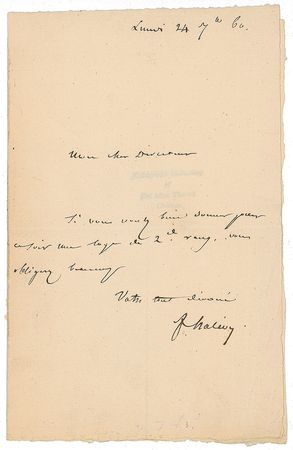 Lundi 24 7bre 60.
Mon cher Directeur
Si vous voulez bien donner pour
ce soir une loge de 2d rang, vous
obligerez beaucoup
Votre tout dévoué
F. Halévy